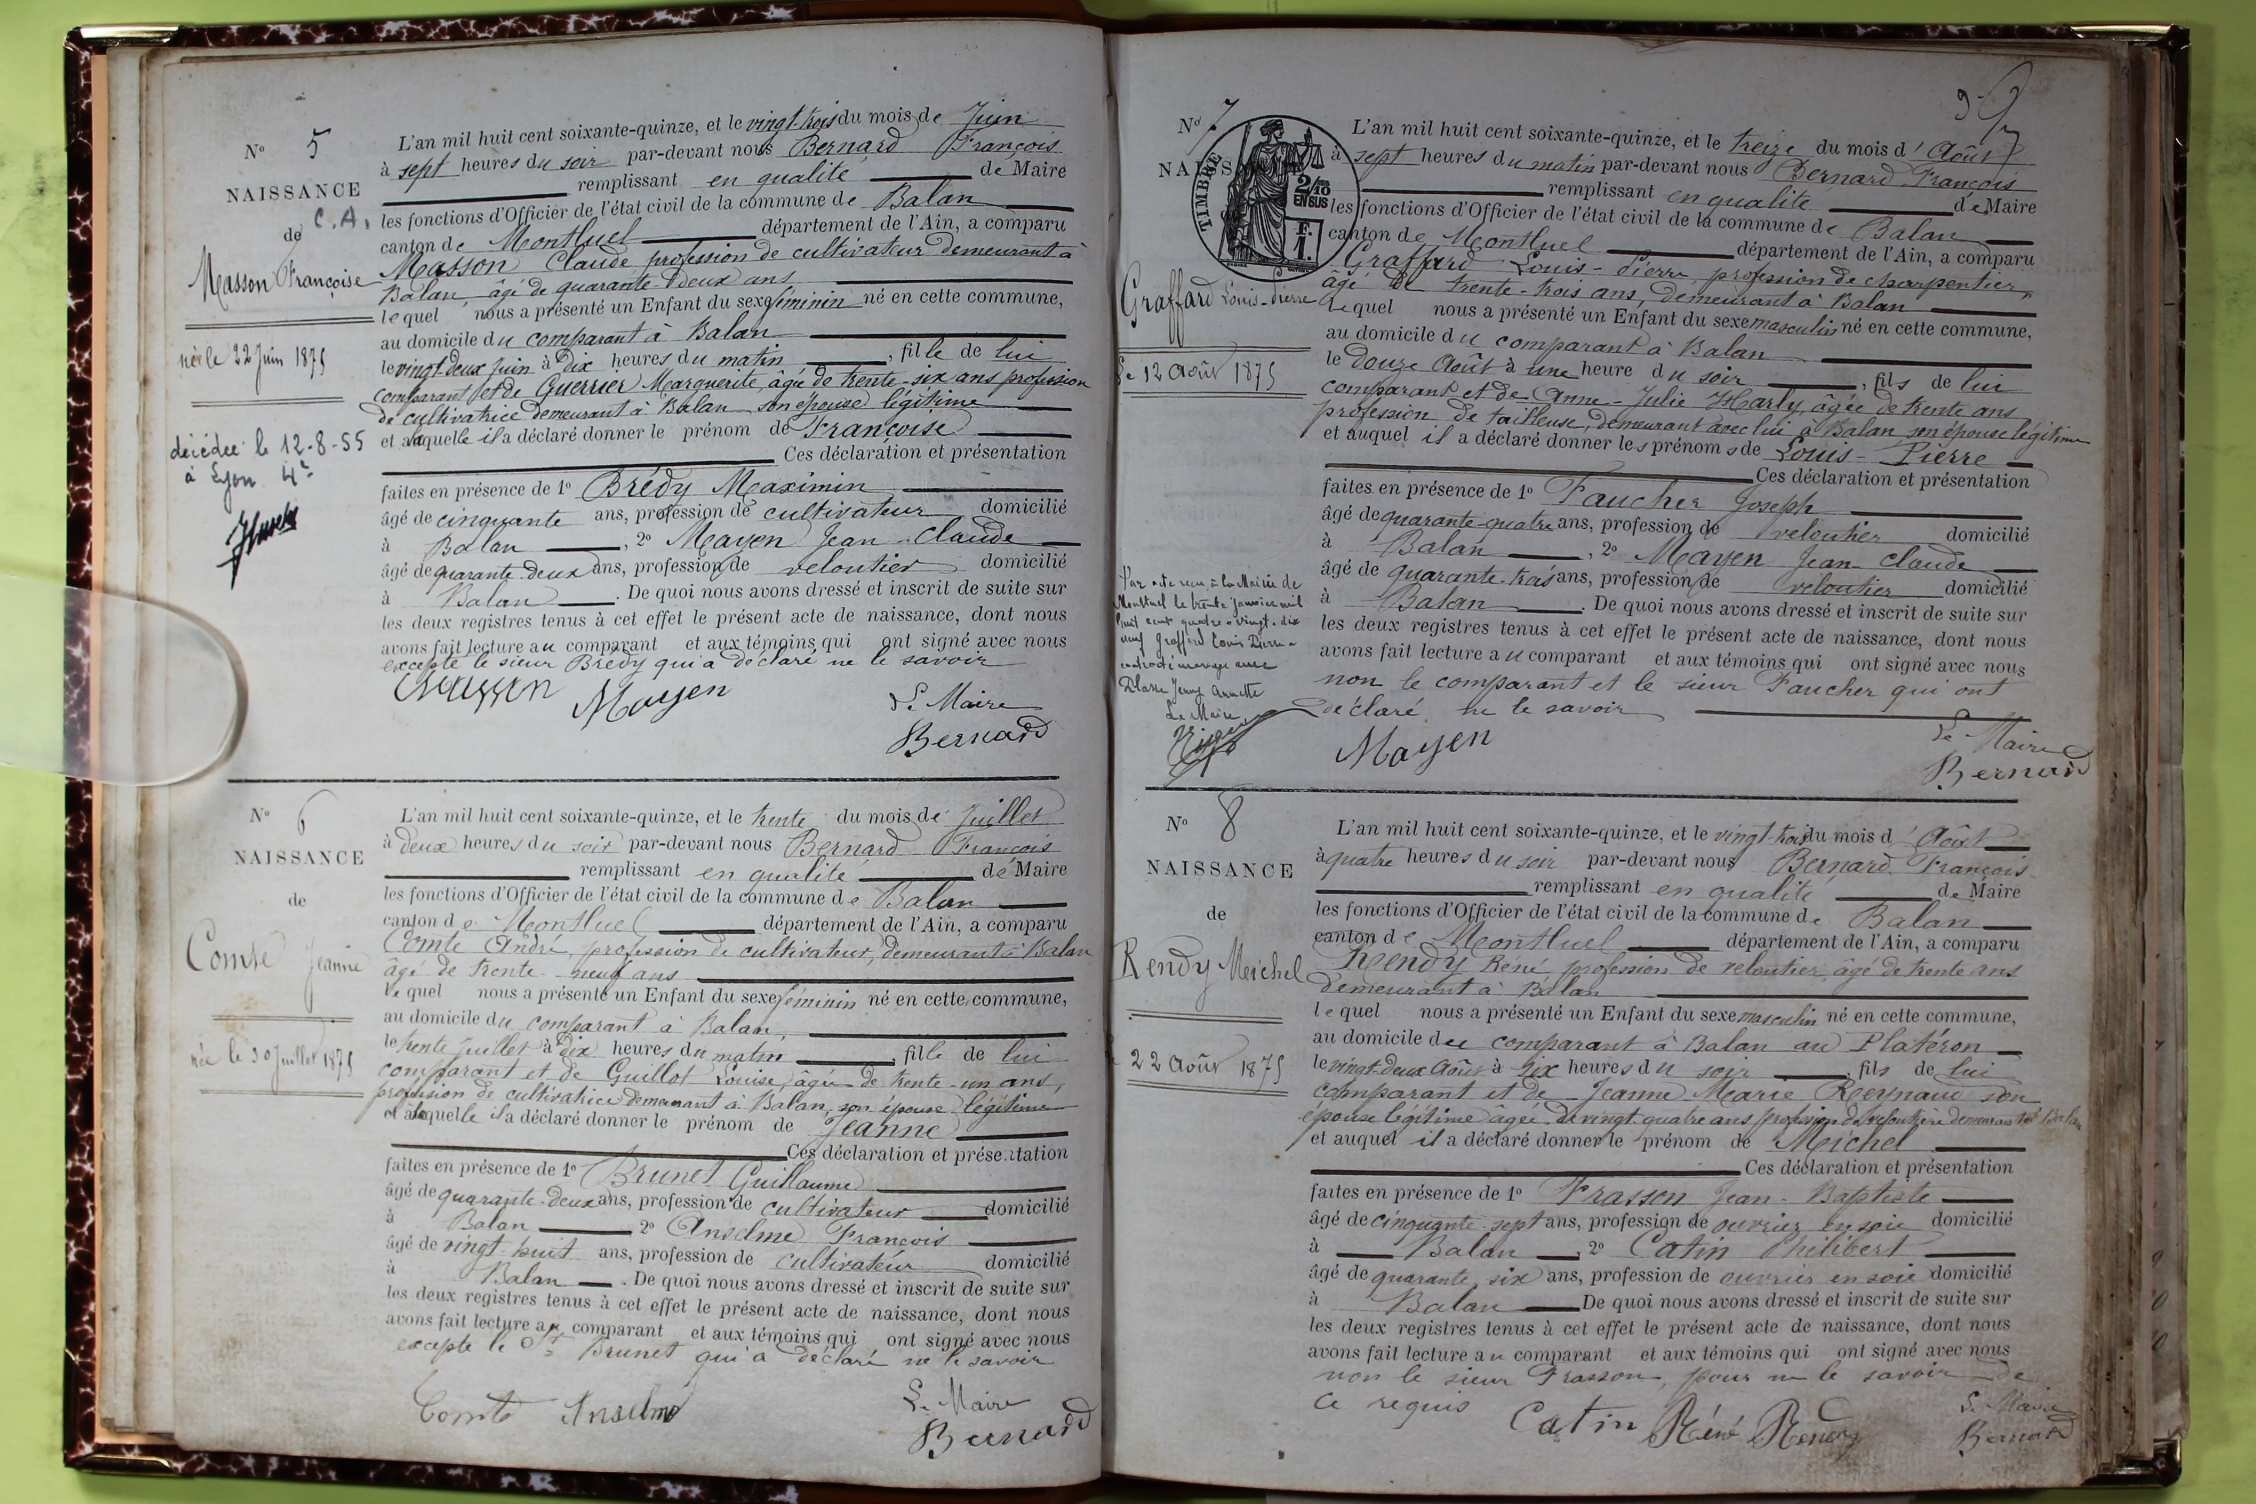 N° 5
NAISSANCE
de C.A.
Masson Françoise
née le 22 Juin 1875
décédée le 12-8-55
à Lyon 4e
L'an mil huit cent soixante-quinze, et le vingt-trois du mois de Juin
à sept heures du soir par-devant nous Bernard François
remplissant en qualité de Maire
les fonctions d'Officier de l'état civil de la commune de Balan
canton de Montluel département de l'Ain, a comparu
Masson Claude profession de cultivateur demeurant à
Balan, âgé de quarante-deux ans
lequel nous a présenté un Enfant du sexe féminin né en cette commune,
au domicile du comparant à Balan
le vingt-deux Juin à dix heures du matin, fille de lui
comparant et de Guerrier Marguerite, âgée de trente-six ans profession
de cultivatrice demeurant à Balan son épouse légitime
et à laquelle il a déclaré donner le prénom de Françoise
Ces déclaration et présentation
faites en présence de 1° Brédy Maximin
âgé de cinquante ans, profession de cultivateur domicilié
à Balan, 2° Mayen Jean-Claude
âgé de quarante-deux ans, profession de veloutier domicilié
à Balan. De quoi nous avons dressé et inscrit de suite sur
les deux registres tenus à cet effet le présent acte de naissance, dont nous
avons fait lecture au comparant et aux témoins qui ont signé avec nous
excepté le sieur Brédy qui a déclaré ne le savoir
Masson Mayen Le Maire
Bernard
N° 6
NAISSANCE
de
Comte Jeanne
née le 30 Juillet 1875
L'an mil huit cent soixante-quinze, et le trente du mois de Juillet
à deux heures du soir par-devant nous Bernard François
remplissant en qualité de Maire
les fonctions d'Officier de l'état civil de la commune de Balan
canton de Montluel département de l'Ain, a comparu
Comte André, profession de cultivateur, demeurant à Balan
âgé de trente-neuf ans
lequel nous a présenté un Enfant du sexe féminin né en cette commune,
au domicile du comparant à Balan,
le trente Juillet à dix heures du matin, fille de lui
comparant et de Guillot Louise, âgée de trente-un ans,
profession de cultivatrice demeurant à Balan, son épouse légitime
et à laquelle il a déclaré donner le prénom de Jeanne
Ces déclaration et présentation
faites en présence de 1° Brunet Guillaume
âgé de quarante-deux ans, profession de cultivateur domicilié
à Balan 2° Anselme François
âgé de vingt-huit ans, profession de cultivateur domicilié
à Balan. De quoi nous avons dressé et inscrit de suite sur
les deux registres tenus à cet effet le présent acte de naissance, dont nous
avons fait lecture au comparant et aux témoins qui ont signé avec nous
excepté le Sr Brunet qui a déclaré ne le savoir
Comte Anselme Le Maire
Bernard
9
N° 7
NAIS
TIMBRE
2/10
EN SUS
F.
1.
Graffard Louis-Pierre
le 12 Août 1875
Par acte reçu à la Mairie de
Montluel le trente janvier mil
huit cent quatre-vingt-dix
neuf Graffard Louis Pierre a
contracté mariage avec
Jenny Annette
Le Maire
L'an mil huit cent soixante-quinze, et le treize du mois d'Août
à sept heures du matin par-devant nous Bernard François
remplissant en qualité de Maire
les fonctions d'Officier de l'état civil de la commune de Balan
canton de Montluel département de l'Ain, a comparu
Graffard Louis-Pierre, profession de charpentier,
âgé de trente-trois ans, demeurant à Balan
Lequel nous a présenté un Enfant du sexe masculin né en cette commune,
au domicile du comparant à Balan
le douze Août à une heure du soir, fils de lui
comparant et de Anne-Julie Harly, âgée de trente ans
profession de tailleuse, demeurant avec lui à Balan son épouse légitime
et auquel il a déclaré donner les prénoms de Louis-Pierre
Ces déclaration et présentation
faites en présence de 1° Faucher Joseph
âgé de quarante-quatre ans, profession de veloutier domicilié
à Balan, 2° Mayen Jean Claude
âgé de quarante-trois ans, profession de veloutier domicilié
à Balan. De quoi nous avons dressé et inscrit de suite sur
les deux registres tenus à cet effet le présent acte de naissance, dont nous
avons fait lecture au comparant et aux témoins qui ont signé avec nous
non le comparant et le sieur Faucher qui ont
déclaré ne le savoir
Mayen Le Maire
Bernard
N° 8
NAISSANCE
de
Rendy Meichel
22 Août 1875
L'an mil huit cent soixante-quinze, et le vingt-trois du mois d'Août
à quatre heures du soir par-devant nous Bernard François
remplissant en qualité de Maire
les fonctions d'Officier de l'état civil de la commune de Balan
canton de Montluel département de l'Ain, a comparu
Rendy Réné, profession de veloutier, âgé de trente ans
demeurant à Balan
lequel nous a présenté un Enfant du sexe masculin né en cette commune,
au domicile du comparant à Balan au Platéron
le vingt-deux Août à six heures du soir, fils de lui
comparant et de Jeanne Marie Reynaud son
épouse légitime âgée de vingt-quatre ans profession de veloutière demeurant à Balan
et auquel il a déclaré donner le prénom de Meichel
Ces déclaration et présentation
faites en présence de 1° Frasson Jean-Baptiste
âgé de cinquante-sept ans, profession de ouvrier en soie domicilié
à Balan, 2° Catin Philibert
âgé de quarante six ans, profession de ouvrier en soie domicilié
à Balan De quoi nous avons dressé et inscrit de suite sur
les deux registres tenus à cet effet le présent acte de naissance, dont nous
avons fait lecture au comparant et aux témoins qui ont signé avec nous
non le sieur Frasson, pour ne le savoir de
ce requis
Catin Réné Rendy Le Maire
Bernard